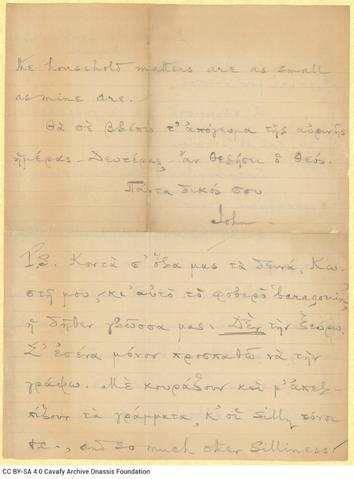 the household matters are as small
as mine are.
Θὰ σὲ βλέπω τ' ἀπόγευμα τῆς αὐρινῆς
ἡμέρας — Δευτέρας — ἂν θελήσῃ ὁ Θεός.
Πάντα δικός σου
John
P.S. Κοντὰ σ' ὅλα μας τὰ δεινά, Κω-
στῆ μου, κι' αὐτὸ τὸ φοβερὸ baragouin,
ἡ δῆθεν γλῶσσα μας! Δὲν τὴν ξεύρω.
Σ' ἐσένα μόνον προσπαθῶ νὰ τὴν
γράφω. Μὲ κουράζουν καὶ μ' ἀπελ-
πίζουν τὰ γράμματα, κ' οἱ silly τόνοι
&c., and so much other silliness!
CC BY-SA 4.0 Cavafy Archive Onassis Foundation